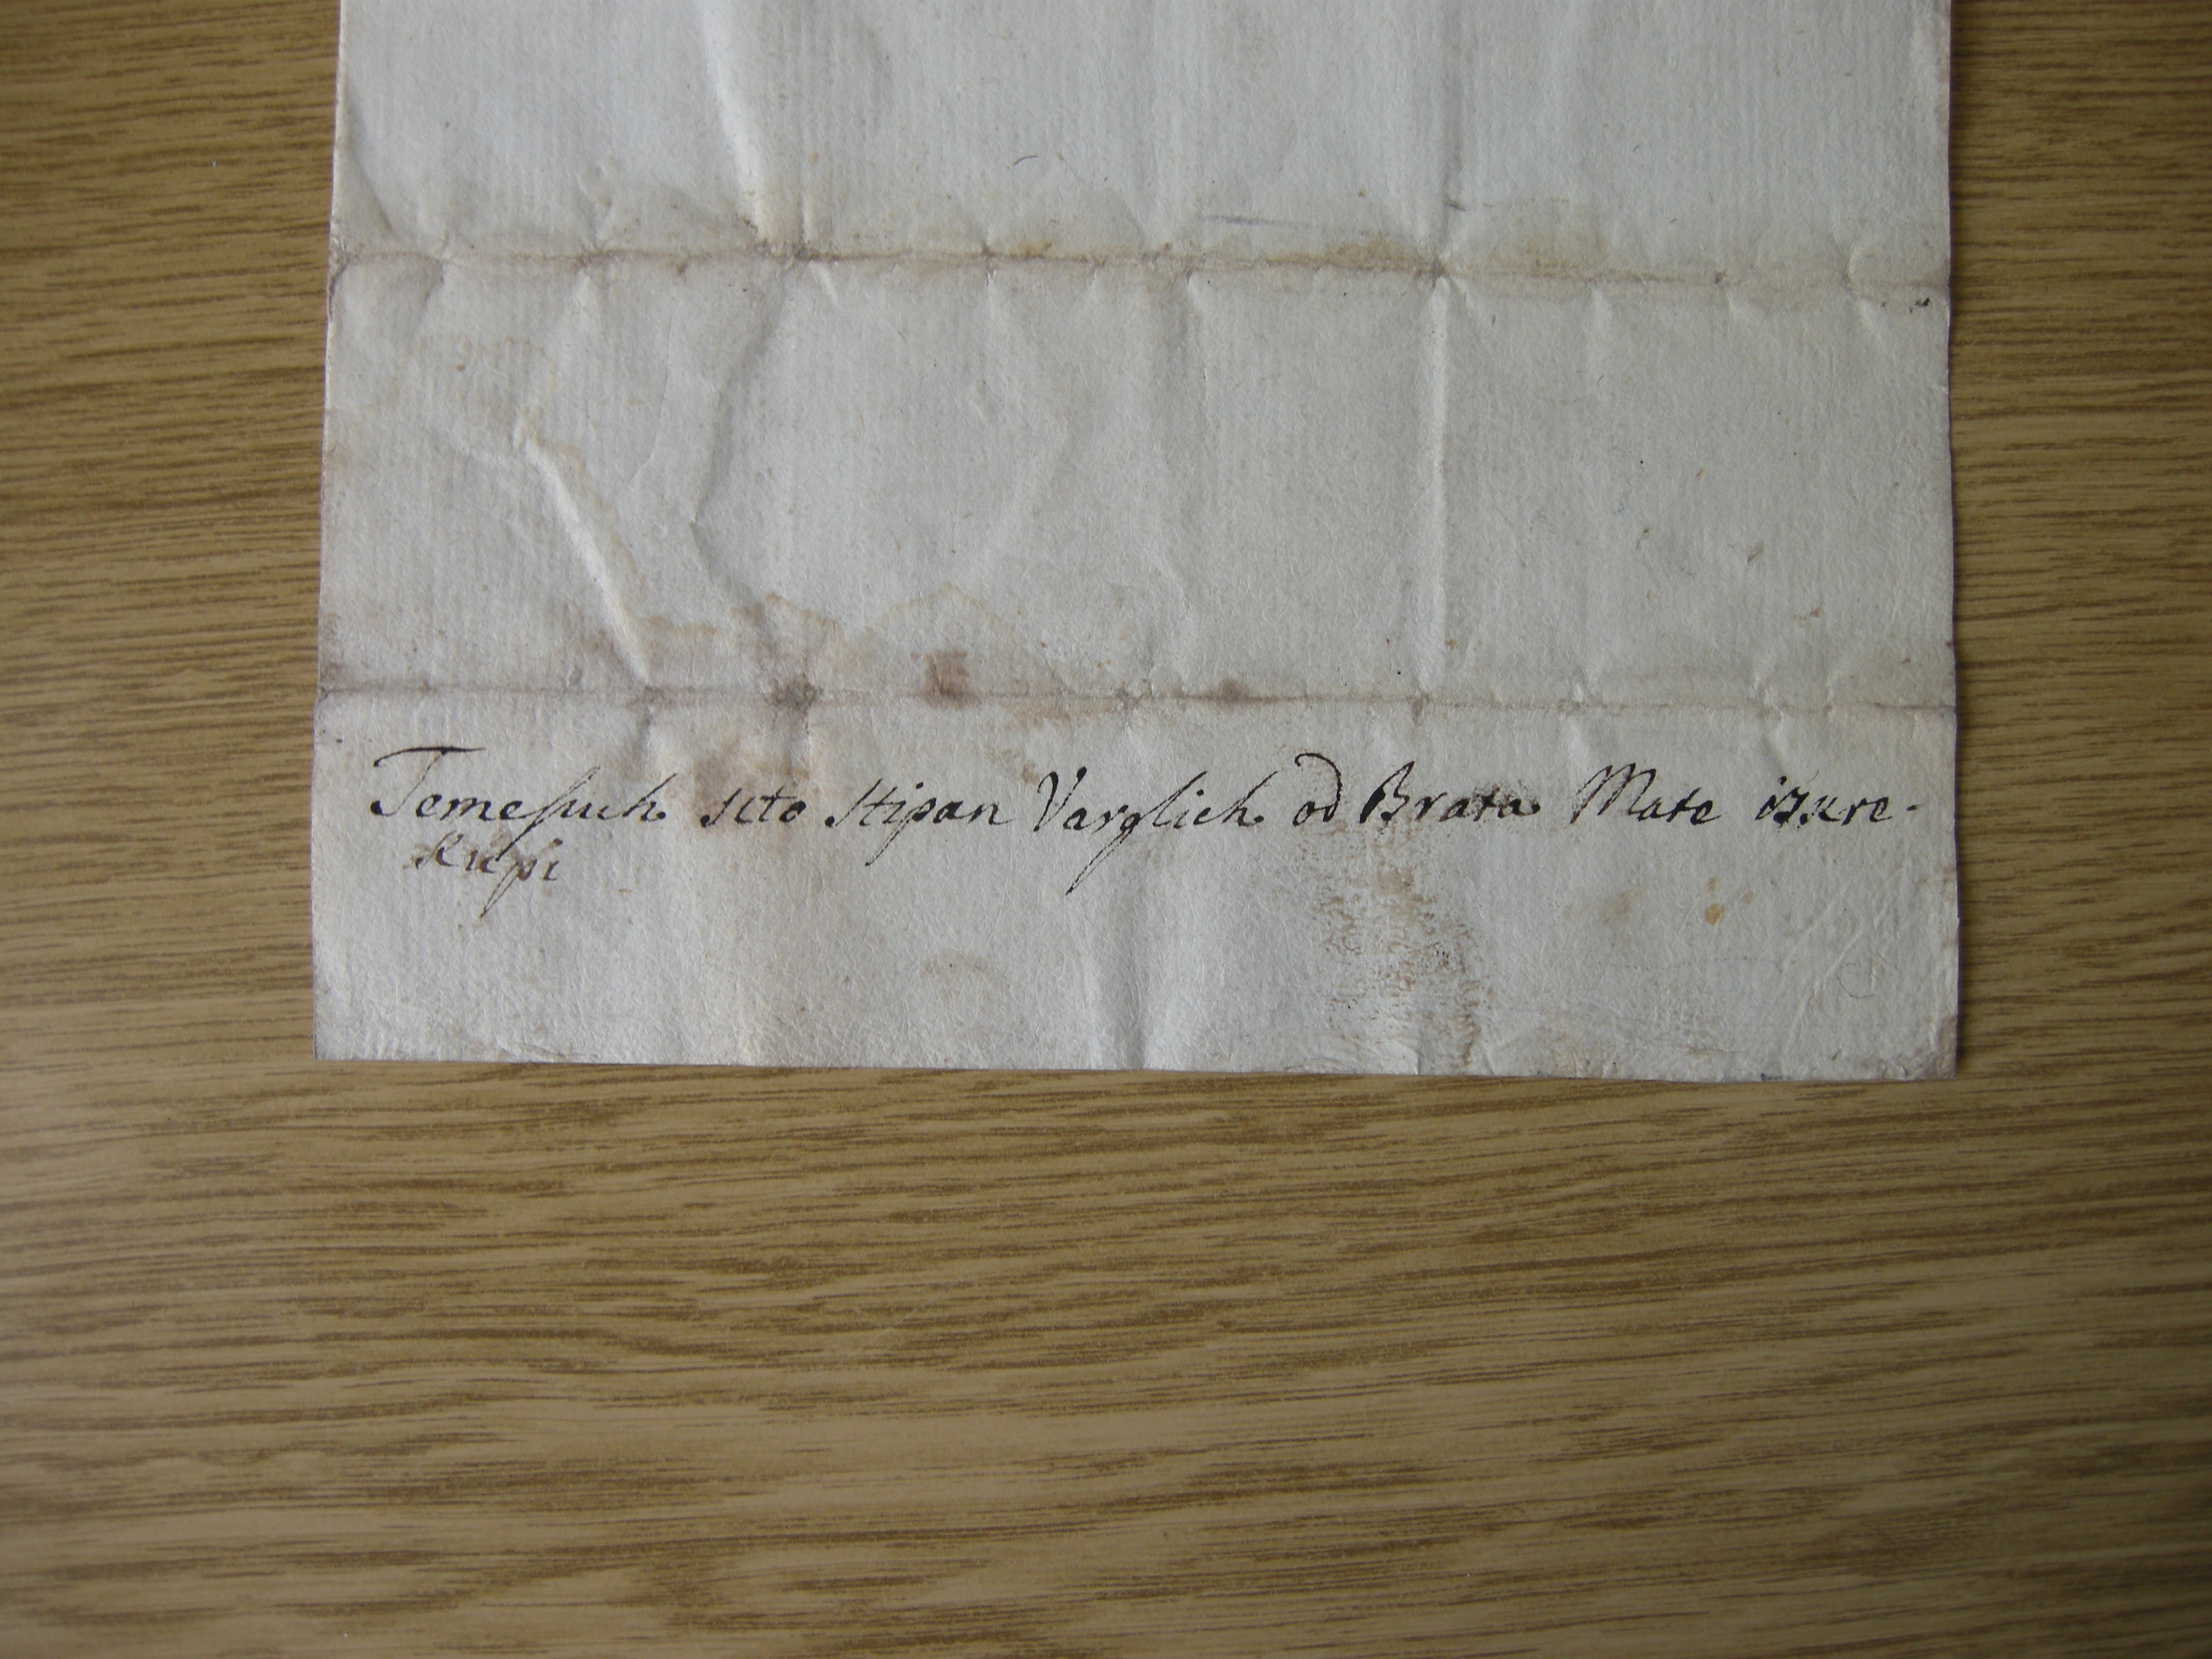 Temeſsuh scto Stipan Varglich od Brata Mate izkre-
kupi